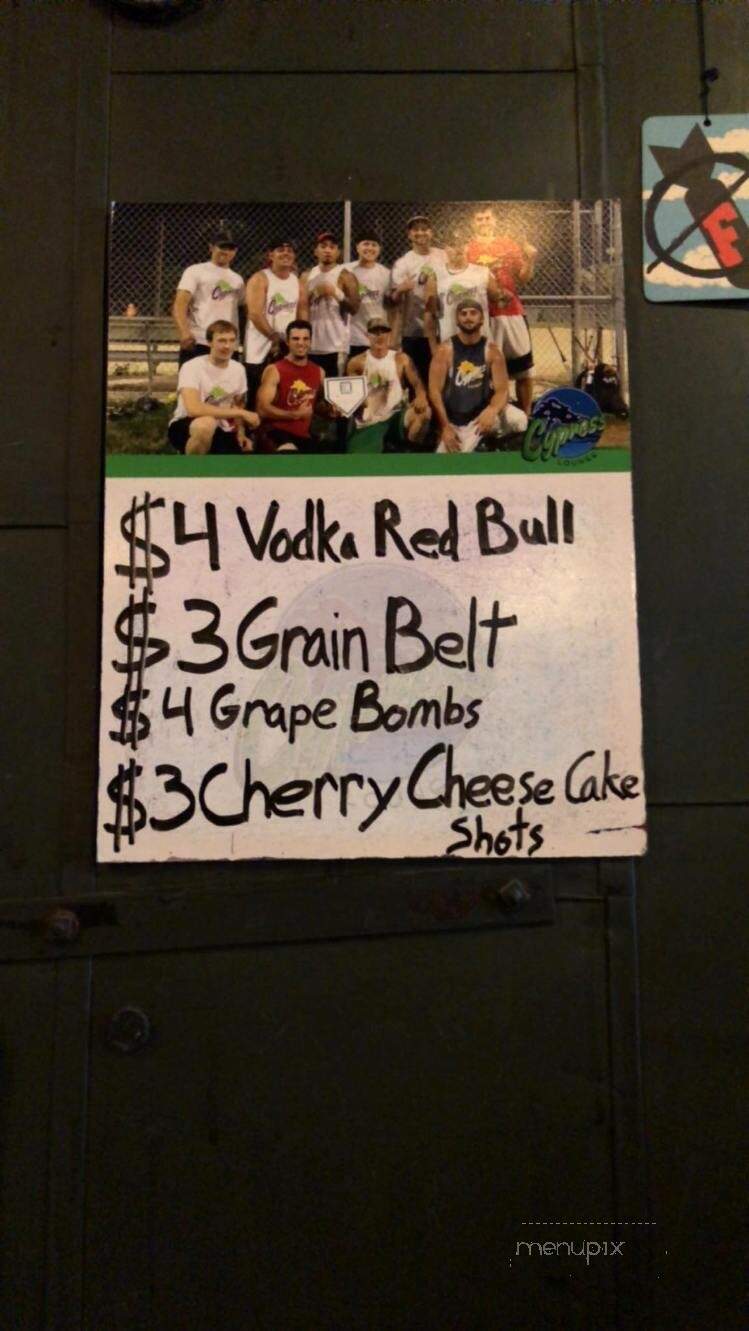 Cypress
LOUNGE
F
$4 Vodka Red Bull
$3 Grain Belt
$4 Grape Bombs
$3 Cherry Cheese Cake
Shots
menupix